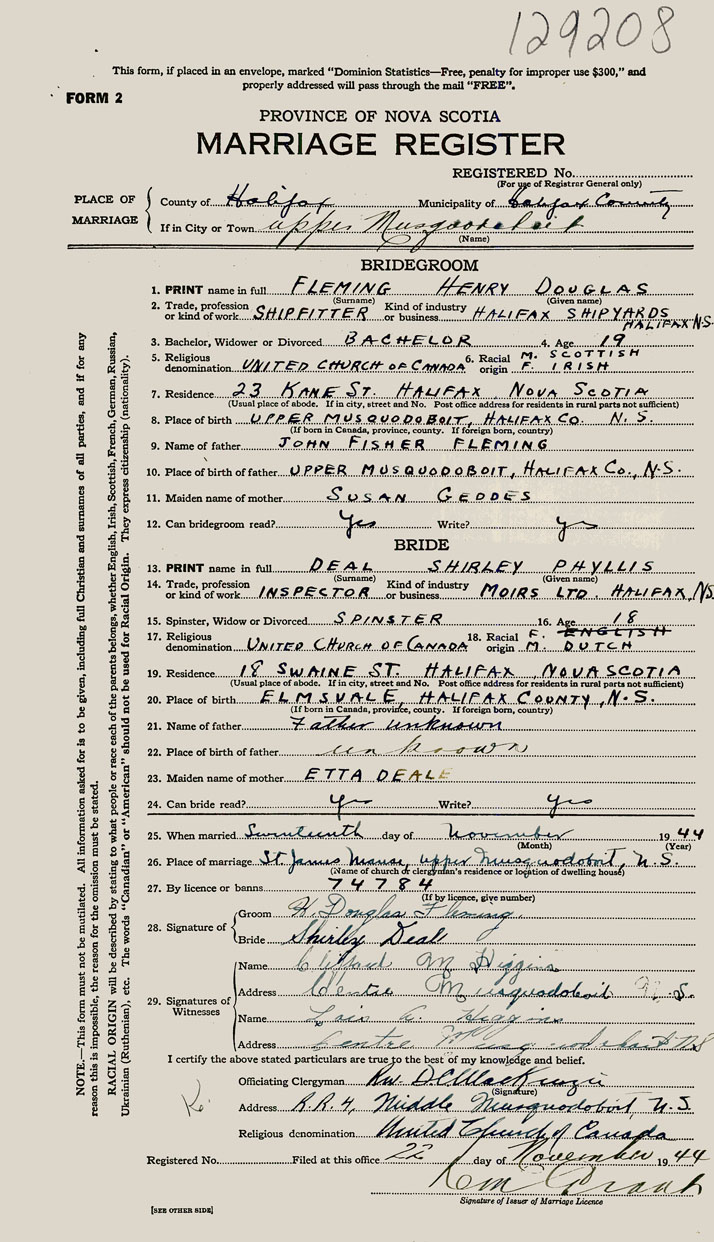 129208
This form, if placed in an envelope, marked "Dominion Statistics—Free, penalty for improper use $300," and
properly addressed will pass through the mail "FREE".
FORM 2
PROVINCE OF NOVA SCOTIA
MARRIAGE REGISTER
REGISTERED No.
(For use of Registrar General only)
PLACE OF MARRIAGE
County of Halifax Municipality of Halifax County
If in City or Town upper Musquodoboit
(Name)
BRIDEGROOM
1. PRINT name in full FLEMING HENRY DOUGLAS
(Surname) (Given name)
2. Trade, profession or kind of work SHIPFITTER Kind of industry or business HALIFAX SHIPYARDS
HALIFAX N.S.
3. Bachelor, Widower or Divorced BACHELOR 4. Age 19
5. Religious denomination UNITED CHURCH OF CANADA 6. Racial origin M. SCOTTISH
F. IRISH
7. Residence 23 KANE ST. HALIFAX NOVA SCOTIA
(Usual place of abode. If in city, street and No. Post office address for residents in rural parts not sufficient)
8. Place of birth UPPER MUSQUODOBOIT, HALIFAX CO. N. S.
(If born in Canada, province, county. If foreign born, country)
9. Name of father JOHN FISHER FLEMING
10. Place of birth of father UPPER MUSQUODOBOIT, HALIFAX CO., N.S.
11. Maiden name of mother SUSAN GEDDES
12. Can bridegroom read? Yes Write? yes
BRIDE
13. PRINT name in full DEAL SHIRLEY PHYLLIS
(Surname) (Given name)
14. Trade, profession or kind of work INSPECTOR Kind of industry or business MOIRS LTD. HALIFAX, N.S.
15. Spinster, Widow or Divorced SPINSTER 16. Age 18
17. Religious denomination UNITED CHURCH OF CANADA 18. Racial origin F. ENGLISH
M. DUTCH
19. Residence 18 SWAINE ST. HALIFAX NOVA SCOTIA
(Usual place of abode. If in city, street and No. Post office address for residents in rural parts not sufficient)
20. Place of birth ELMSVALE, HALIFAX COUNTY, N.S.
(If born in Canada, province, county. If foreign born, country)
21. Name of father Father unknown
22. Place of birth of father unknown
23. Maiden name of mother ETTA DEALE
24. Can bride read? Yes Write? Yes
25. When married Seventeenth day of November 1944
(Month) (Year)
26. Place of marriage St. James Manse, upper Musquodoboit, N.S.
(Name of church or clergyman's residence or location of dwelling house)
27. By licence or banns 74784
(If by licence, give number)
28. Signature of
Groom H. Douglas Fleming.
Bride Shirley Deal
29. Signatures of Witnesses
Name Clifford M Higgins
Address Centre Musquodoboit N.S.
Name Lois A. Higgins
Address Centre Musquodoboit N.S
I certify the above stated particulars are true to the best of my knowledge and belief.
Officiating Clergyman Rev. D.C. MacKenzie
(Signature)
Address R.R. 4, Middle Musquodoboit, N.S.
Religious denomination United Church of Canada
Registered No. Filed at this office 22 day of November 1944
Signature of Issuer of Marriage Licence
[SEE OTHER SIDE]
NOTE.—This form must not be mutilated. All information asked for is to be given, including full Christian and surnames of all parties, and if for any
reason this is impossible, the reason for the omission must be stated.
RACIAL ORIGIN will be described by stating to what people or race each of the parents belongs, whether English, Irish, Scottish, French, German, Russian,
Ukrainian (Ruthenian), etc. The words "Canadian" or "American" should not be used for Racial Origin. They express citizenship (nationality).